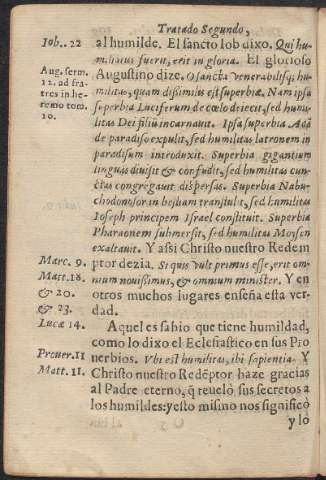 Tratado Segundo,
Iob.. 22 al humilde. El sancto Iob dixo. Qui hu-
miliatus fuerit, erit in gloria. El glorioso
Aug. serm. 12. ad fra tres in he remo tom. 10.
Augustino dize. O sancta venerabilisq; hu
militas, quam disimilis est superbiæ. Nam ipsa
superbia Luciferum de cœlo deiecit, sed humi
litas Dei filiũ incarnauit. Ipsa superbia Adã
de paradiso expulit, sed humilitas latronem in
paradisum introduxit. Superbia gigantium
linguas diuisit & confudit, sed humilitas cun-
ctas congregauit dispersas. Superbia Nabu-
chodonosor in bestiam transtulit, sed humilitas
Ioseph principem Israel constituit. Superbia
Pharaonem submersit, sed humilitas Moysen
exaltauit. Y assi Christo nuestro Redem
Marc. 9. ptor dezia. Si quis vult primus esse, erit om-
Matt. 18. nium nouissimus, & omnium minister. Y en
& 20. otros muchos lugares enseña esta ver-
& 23. dad.
Lucæ 14. Aquel es sabio que tiene humildad,
como lo dixo el Eclesiastico en sus Pro
Prouer. 11 uerbios. Vbi est humilitas, ibi sapientia. Y
Matt. 11. Christo nuestro Redẽptor haze gracias
al Padre eterno, q̃ reuelò sus secretos a
los humildes: y esto mismo nos significò
y lo